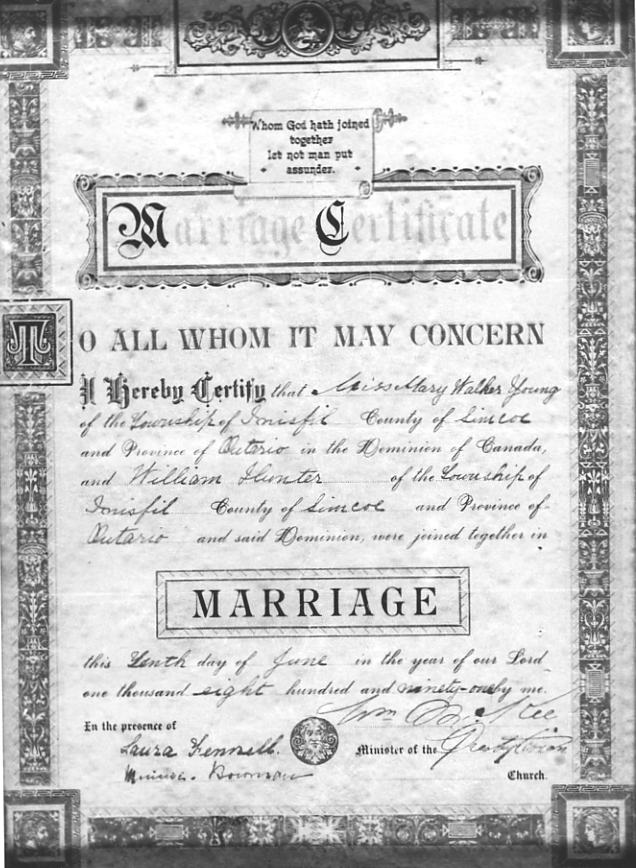 Whom God hath joined
together
let not man put
assunder.
Marriage Certificate
TO ALL WHOM IT MAY CONCERN
I Hereby Certify that Miss Mary Walker Young
of the Township of Innisfil County of Simcoe
and Province of Ontario in the Dominion of Canada,
and William Hunter of the Township of
Innisfil County of Simcoe and Province of
Ontario and said Dominion, were joined together in
MARRIAGE
this Tenth day of June in the year of our Lord
one thousand eight hundred and ninety-one by me.
Wm
In the presence of
Laura Fennell. Minister of the Presbyterian
Minnie Bowman Church.